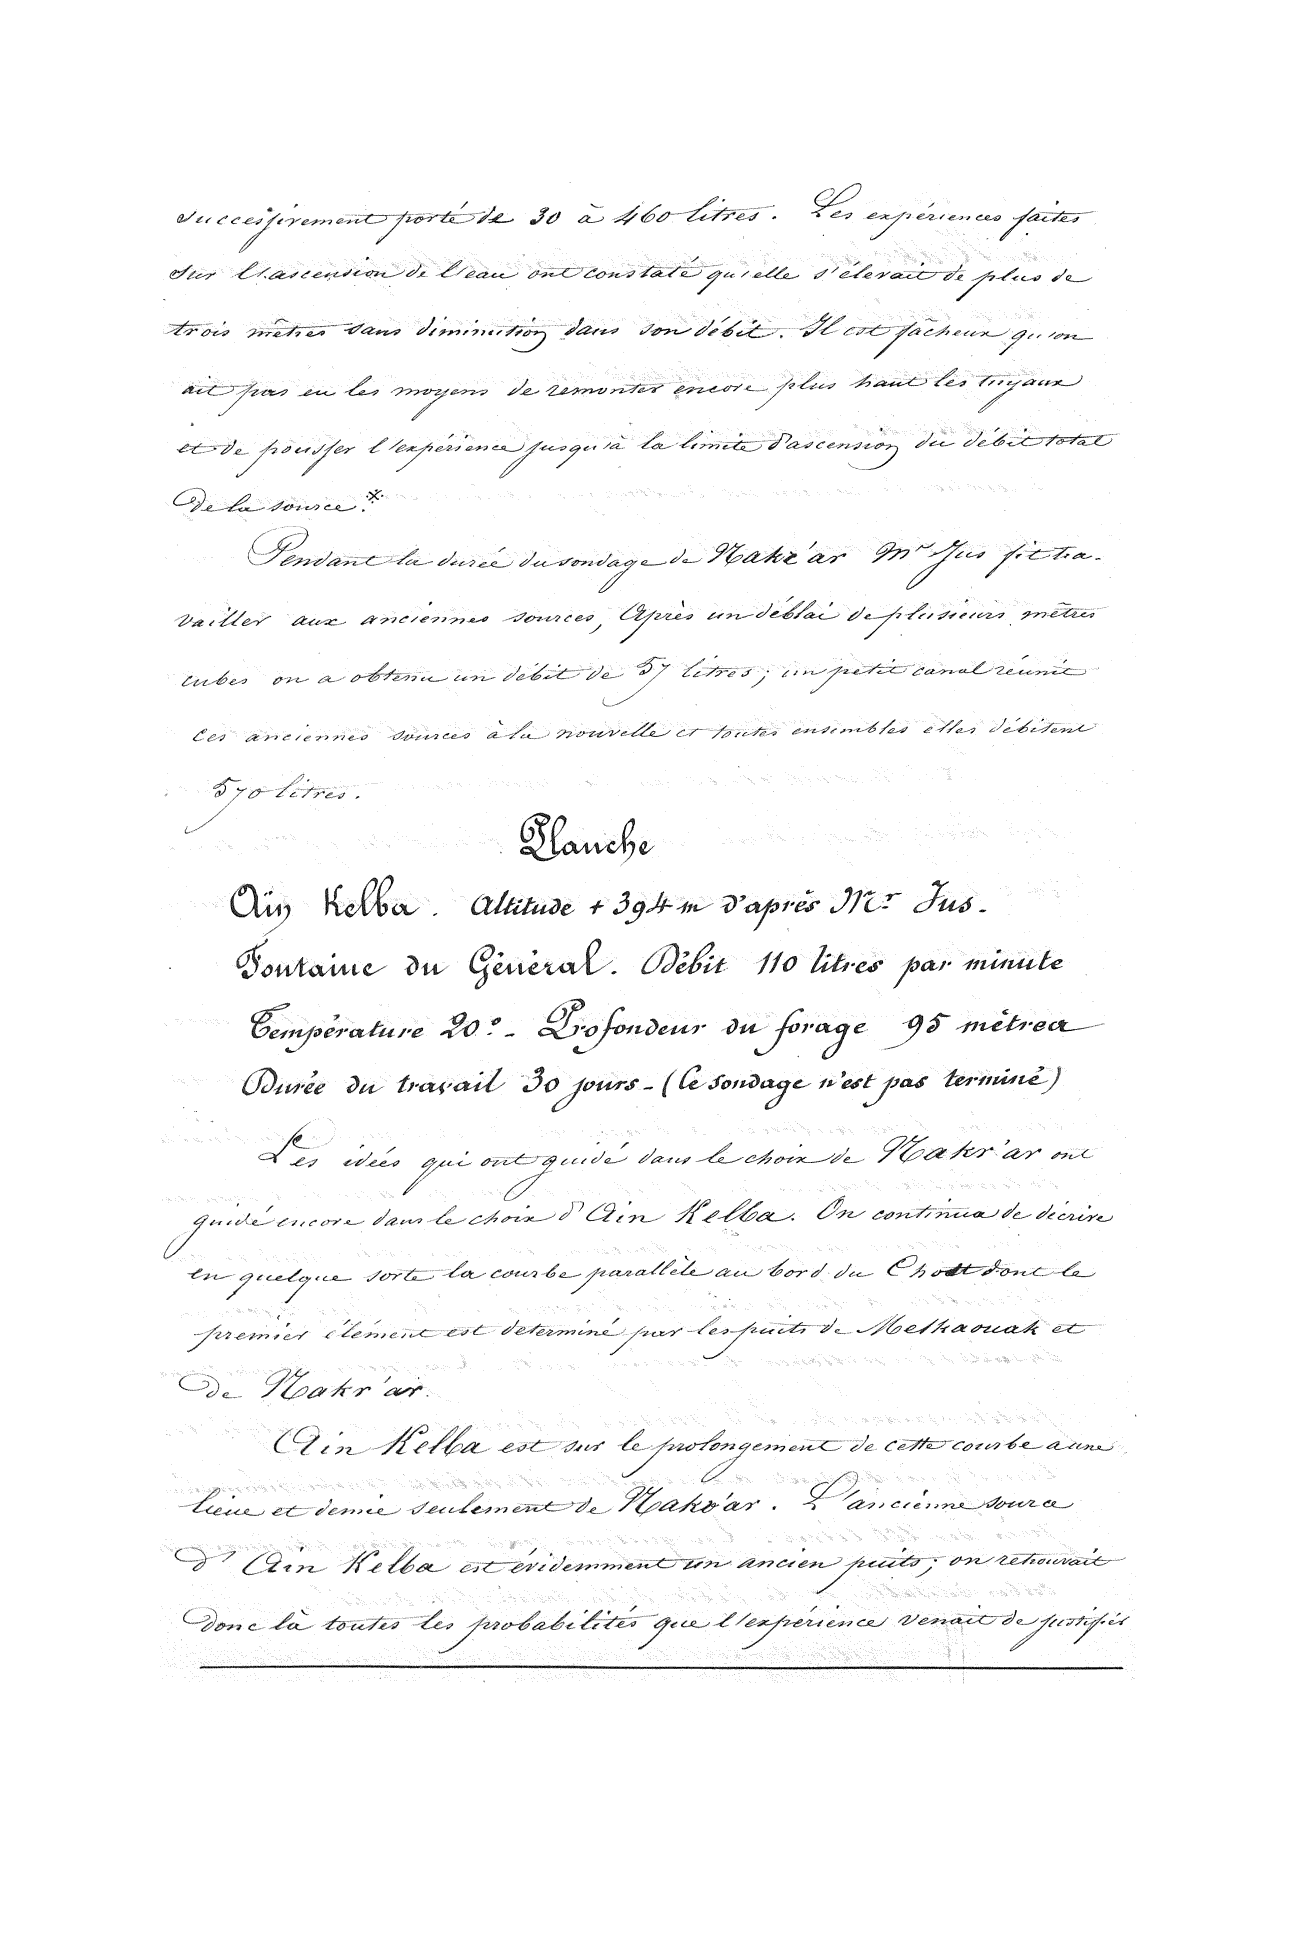 successivement porté de 30 à 460 litres. Les expériences faites
sur l'ascension de l'eau ont constaté qu'elle s'élevait de plus de
trois mètres sans diminution dans son débit. Il est fâcheux qu'on
ait pas eu les moyens de remonter encore plus haut les tuyaux
et de pousser l'expérience jusqu'à la limite d'ascension du débit total
de la source.*
Pendant la durée du sondage de Nakr'ar Mr Jus fit tra-
vailler aux anciennes sources, Après un déblai de plusieurs mètres
cubes on a obtenu un débit de 57 litres; un petit canal réunit
ces anciennes sources à la nouvelle et toutes ensembles elles débitent
570 litres.
Planche
Ain Kelba. Altitude + 394 m d'après Mr Jus.
Fontaine du Général. Débit 110 litres par minute
Température 20° - Profondeur du forage 95 mètres
Durée du travail 30 jours - (Ce sondage n'est pas terminé)
Les idées qui ont guidé dans le choix de Nakr'ar ont
guidé encore dans le choix d'Ain Kelba. On continua de décrire
en quelque sorte la courbe parallèle au bord du Chott dont le
premier élément est determiné par les puits de Melkaouak et
de Nakr'ar.
Ain Kelba est sur le prolongement de cette courbe a une
lieue et demie seulement de Nakr'ar. L'ancienne source
d'Ain Kelba est évidemment un ancien puits; on retrouvait
donc là toutes les probabilités que l'expérience venait de justifier